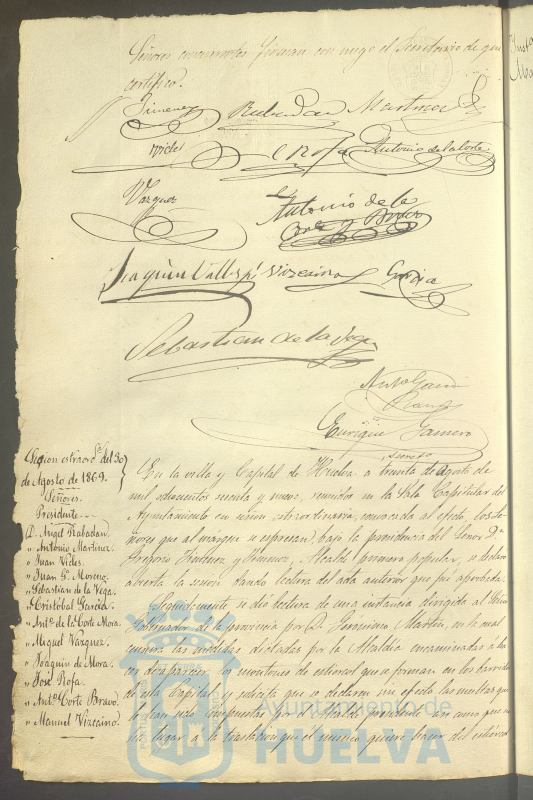 Señores concurrentes firman con migo el Secretario de que
certifico.
Jimenez Rabadan Martinez
Vides C. Rofa Antonio de la Corte
Vazquez
Antonio de la
Corte y Bravo
Joaquin Vizcaino Garcia
Sebastian de la Vega
Ant.º Garcia
Enrique
Secreto
Sesion estraord.ª del 30
de Agosto de 1869.
Señores.
Presidente
D. Angel Rabadan.
" Antonio Martinez.
" Juan Vides.
" Juan G. Moreno.
" Sebastian de la Vega.
" Cristobal Garcia.
" Ant.º de la Corte Mora.
" Miguel Vazquez.
" Joaquin de Mora.
" José Rofa.
" Ant.º Corte Bravo.
" Manuel Vizcaino.
En la villa y Capital de Huelva a treinta de Agosto de
mil ochocientos sesenta y nueve, reunidos en la Sala Capitular del
Ayuntamiento en sesion estraordinaria, convocada al efecto, los Se-
ñores que al margen se espresan, bajo la presidencia del Señor D.
Gregorio Jimenez y Jimenez, Alcalde primero popular, se declaró
abierta la sesion dando lectura del acta anterior que fué aprobada.
Seguidamente se dió lectura de una instancia dirigida al Señor
Gobernador de la provincia por D. Geronimo Martin, en la cual
las medidas dictadas por la Alcaldia encaminadas á ha-
cer desaparecer los montones de estiercol que se forman en los barrios
de esta Capital y solicita que se declaren sin efecto las multas que
le han sido impuestas por el Alcalde presidente asi como que no
ha lugar á la traslacion que el mismo quiere hacer del estiercol
Ayuntamiento de
HUELVA